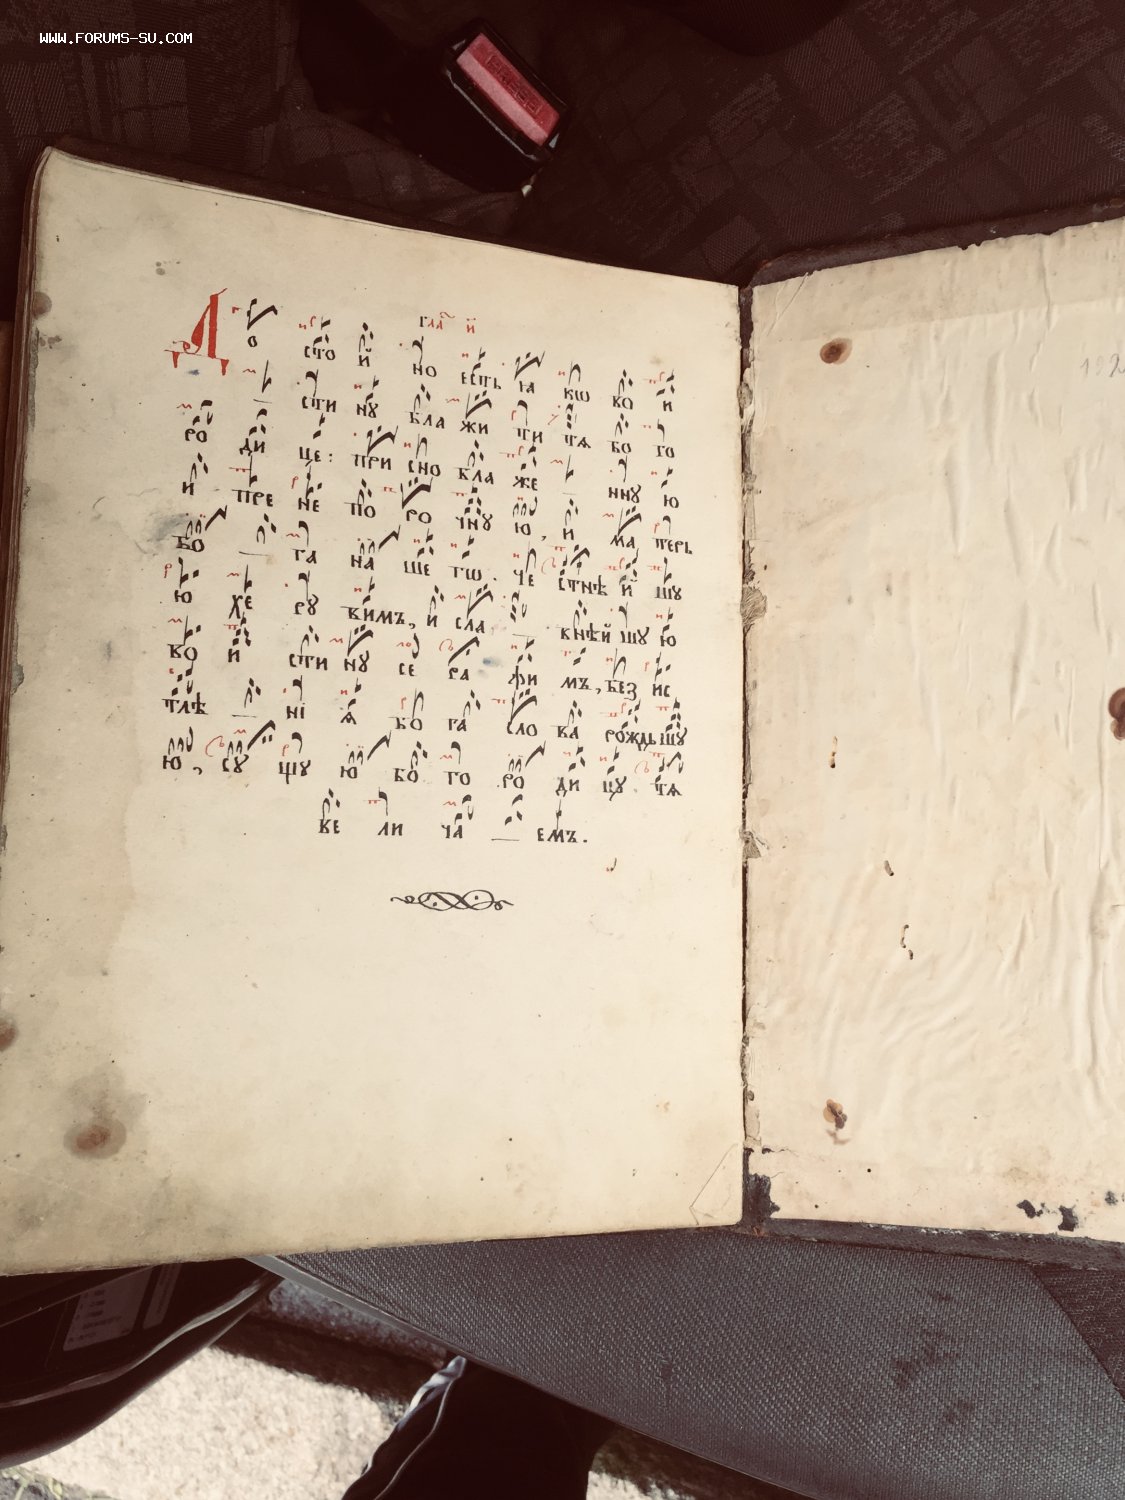 WWW.FORUMS-SU.COM
PRESS
гла҃ и҃
До сто й но єсть ꙗ кѡ во и
сти нꙋ бла жи ти тѧ бо го
ро ди це: при сно бла же ннꙋ ю
и пре не по ро чнꙋ ю, и ма терь
бо га на ше гѡ. че стнѣ й шꙋ
ю хе рꙋ вимъ, и сла внѣй шꙋ ю
во и сти нꙋ се ра фи мъ, без ис
тлѣ нї ѧ бо га сло ва рождьшꙋ
ю, сꙋ щꙋ ю бо го ро ди цꙋ тѧ
ве ли ча емъ.